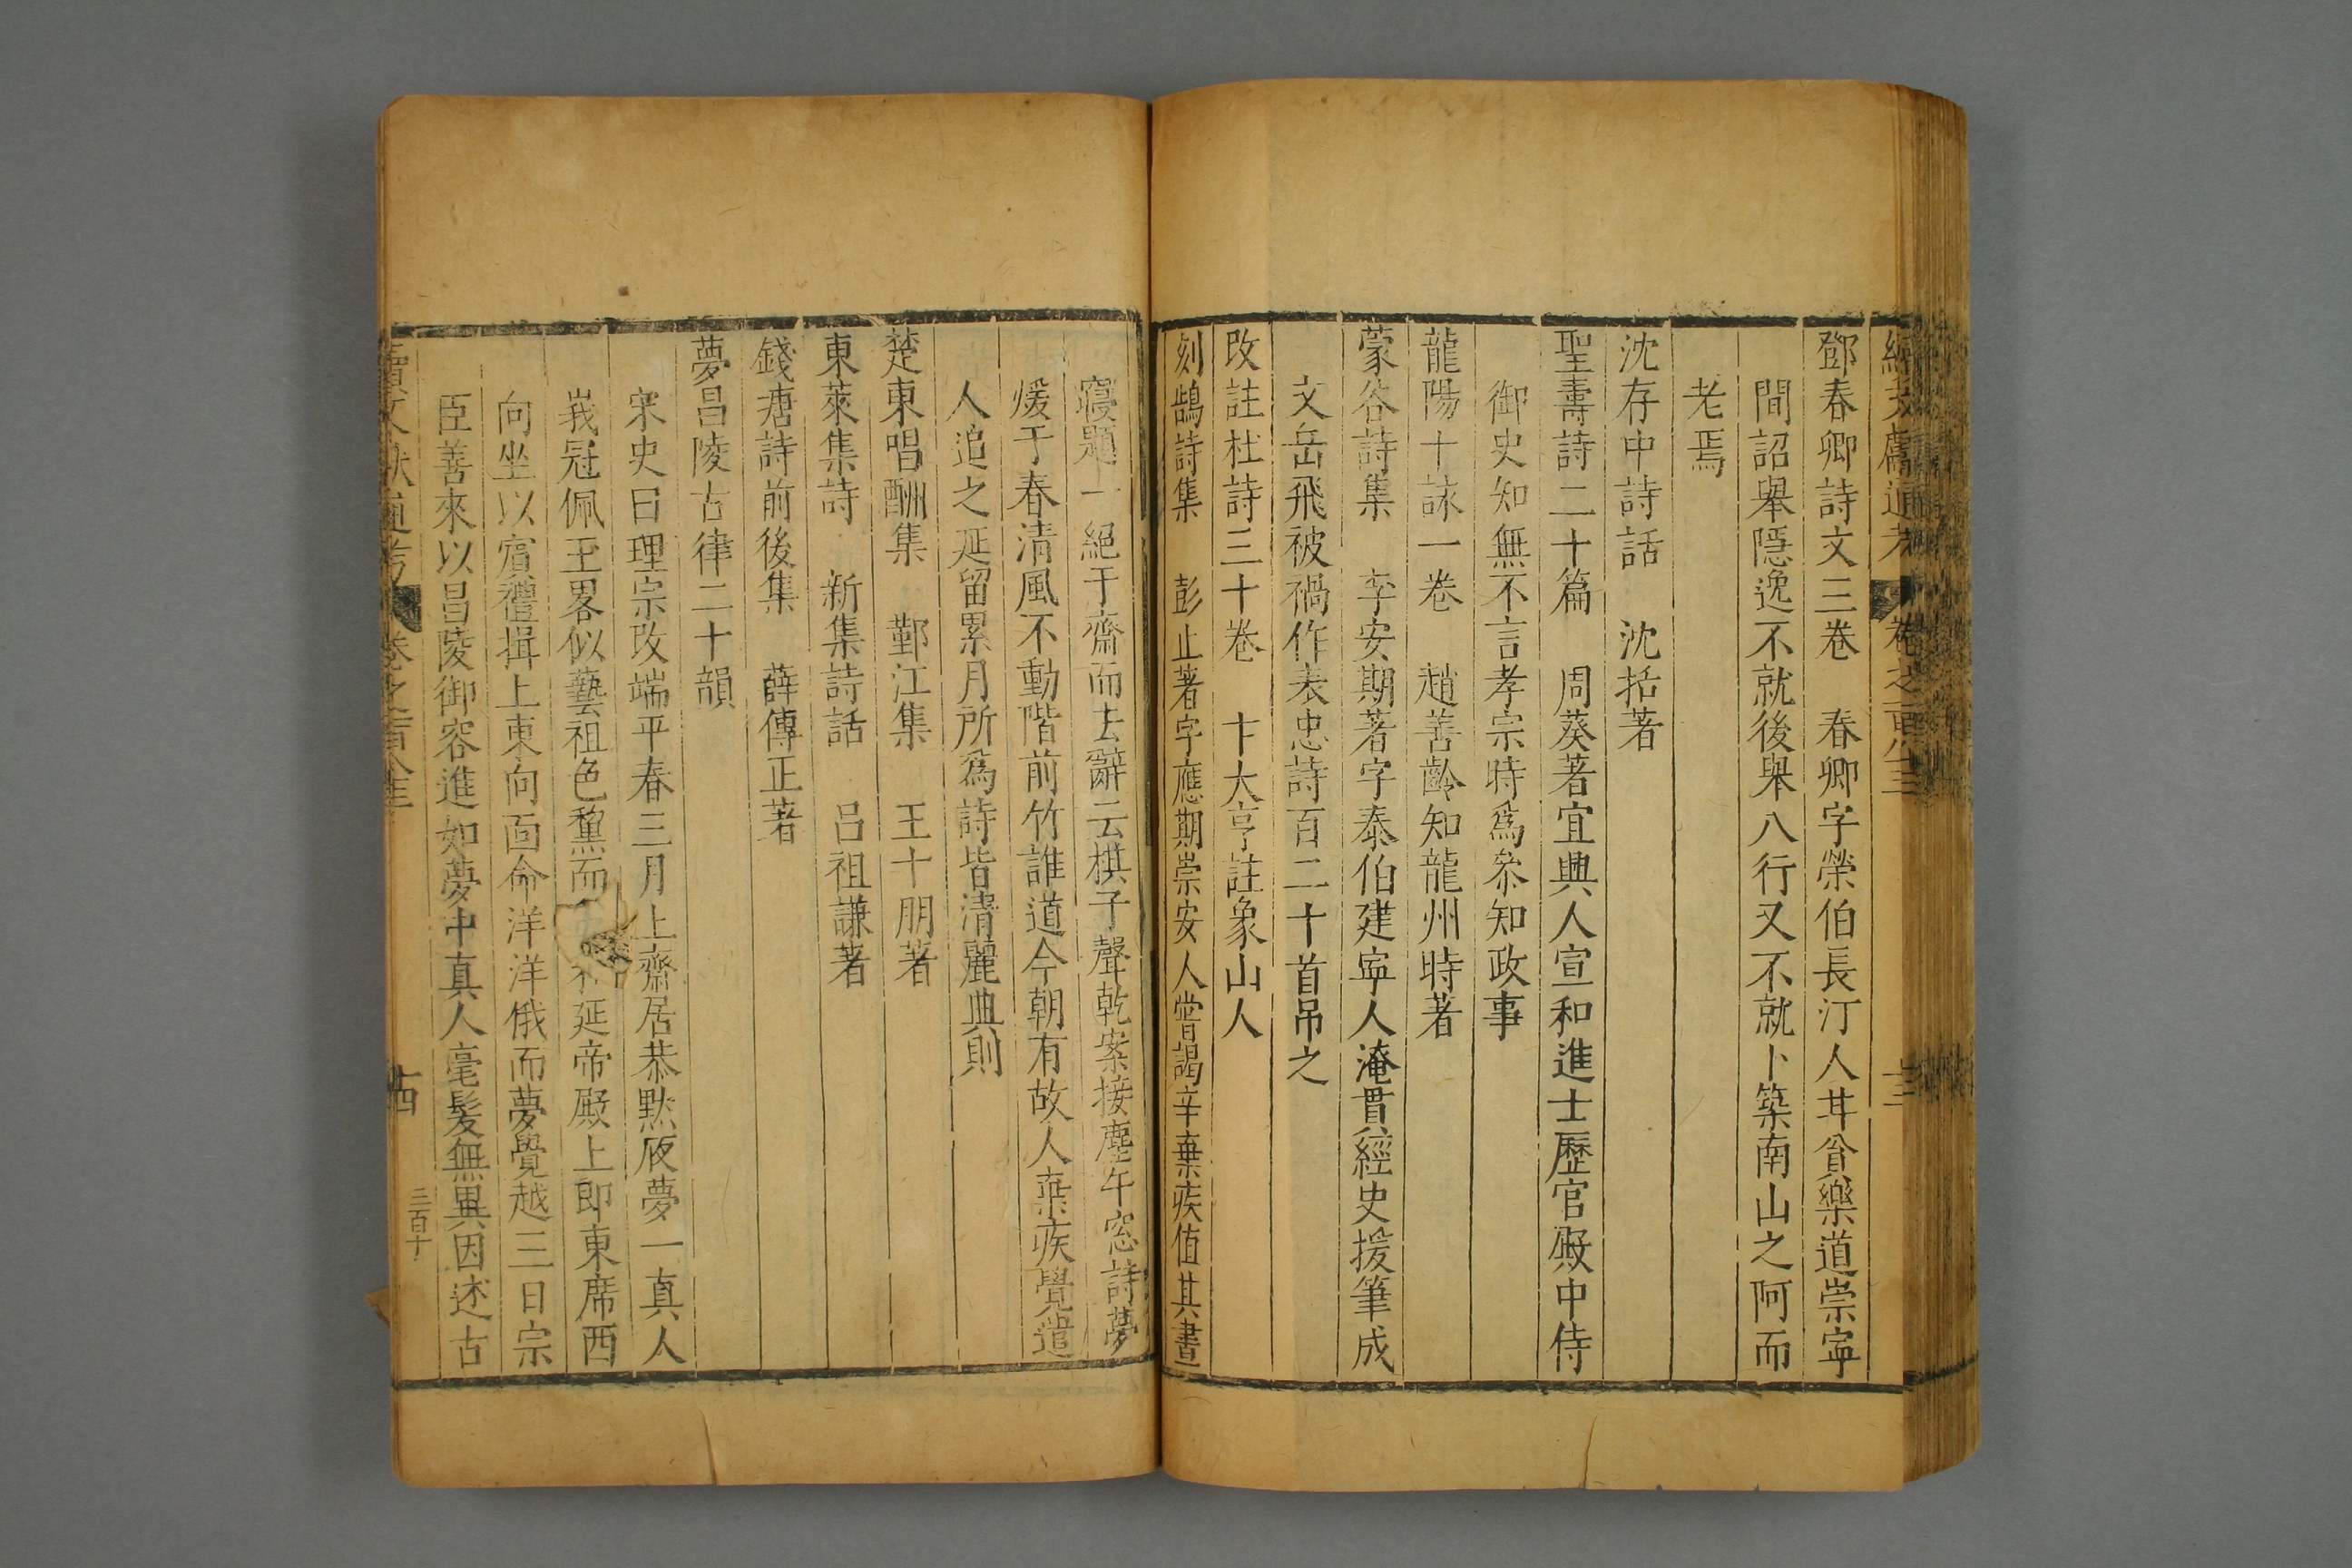 鄧春卿詩文三卷　春卿字榮伯長汀人甘貧樂道崇寧
間詔舉隱逸不就後舉八行又不就卜築南山之阿而
老焉
沈存中詩話　沈括著
聖壽詩二十篇　周葵著宜興人宣和進士歷官殿中侍
御史知無不言孝宗時爲叅知政事
龍陽十詠一卷　趙善齡知龍州時著
蒙谷詩集　李安期著字泰伯建寧人淹貫經史援筆成
文岳飛被禍作表忠詩百二十首吊之
改註杜詩三十卷　卞大亨註象山人
刻鵠詩集　彭止著字應期崇安人嘗謁辛棄疾值其晝
寢題一絕于齋而去辭云棋子聲乾案接塵午窓詩夢
煖于春清風不動階前竹誰道今朝有故人棄疾覺遣
人追之延留累月所爲詩皆清麗典則
楚東唱酬集　鄞江集　王十朋著
東萊集詩　新集詩話　吕祖謙著
錢塘詩前後集　薛傳正著
夢昌陵古律二十韻
宋史曰理宗改端平春三月上齋居恭黙夜夢一真人
峩冠佩玉畧似藝祖色黧而延帝殿上即東席西
向坐以賓禮揖上東向面命洋洋俄而夢覺越三日宗
臣善來以昌陵御容進如夢中真人毫髮無異因述古
續文獻通考　卷之一百八十三　十四
三百十